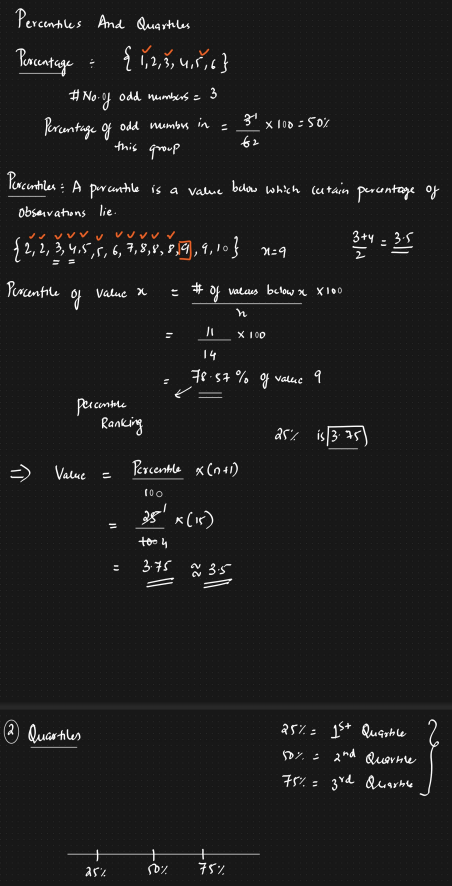 Percentiles And Quartiles
Percentage ÷ { 1, 2, 3, 4, 5, 6 }
# No. of odd numbers = 3
Percentage of odd numbers in this group = 3/6 × 100 = 50%
1
2
Percentiles : A percentile is a value below which certain percentage of
observations lie.
{ 2, 2, 3, 4, 5, 5, 6, 7, 8, 8, 8, 9, 9, 10 } x=9
3+4/2 = 3.5
Percentile of value x = # of values below x / n × 100
= 11/14 × 100
= 78.57% of value 9
Percentile
Ranking
25% is 3.75
⇒ Value = Percentile/100 × (n+1)
= 25/100 × (15)
1
4
= 3.75 ≈ 3.5
② Quartiles
25% = 1st Quartile
50% = 2nd Quartile
75% = 3rd Quartile
25% 50% 75%